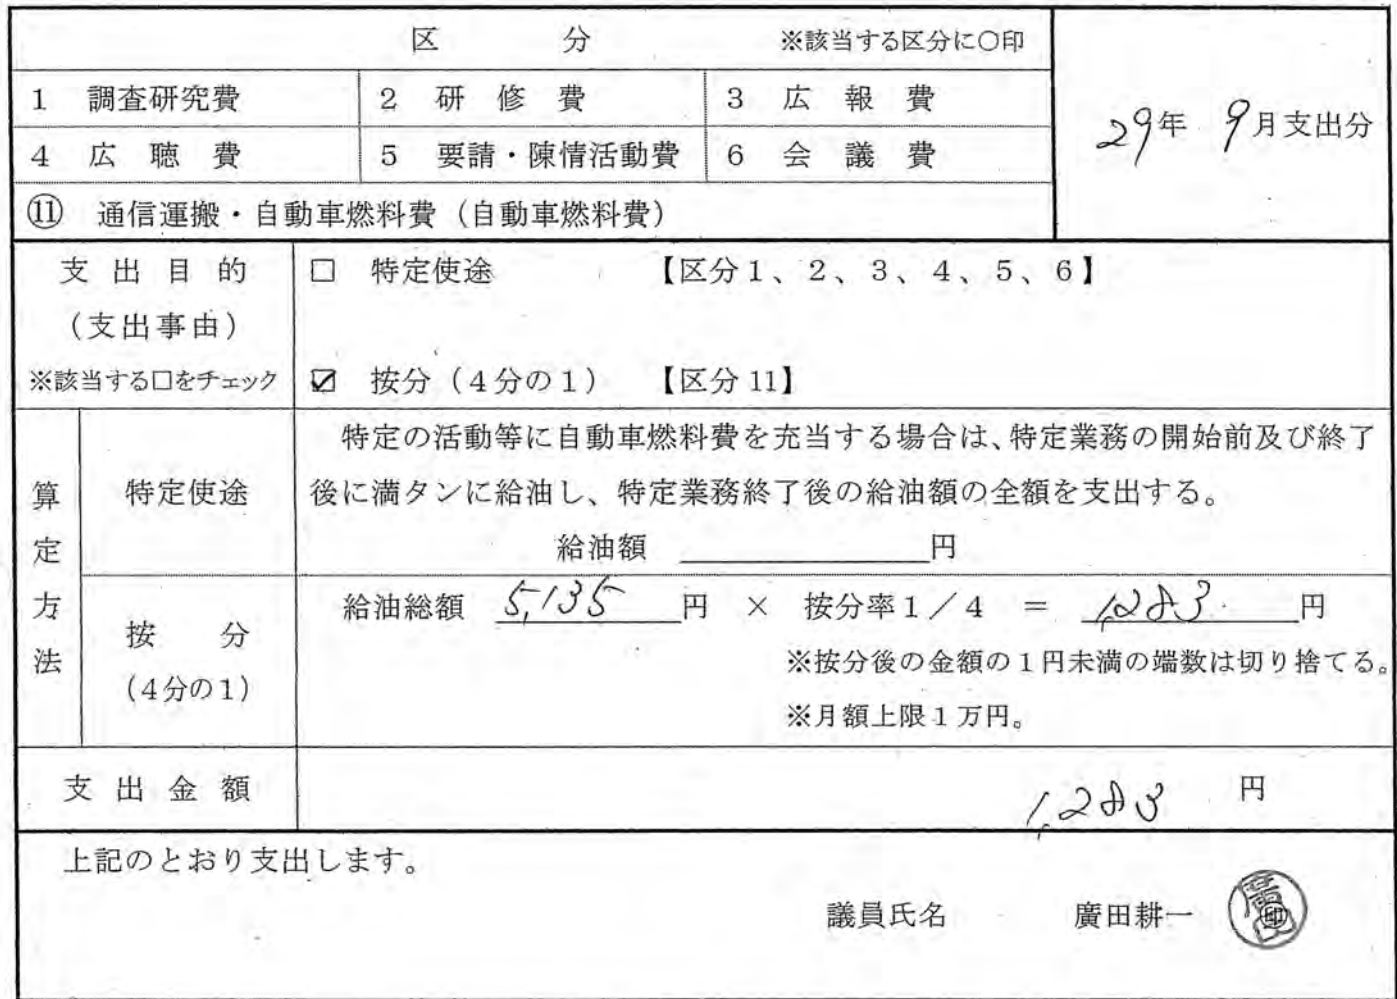 区　　　分　　　※該当する区分に○印
1　調査研究費　2　研　修　費　3　広　報　費
29年　9月支出分
4　広　聴　費　5　要請・陳情活動費　6　会　議　費
⑪　通信運搬・自動車燃料費（自動車燃料費）
支　出　目　的　□　特定使途　【区分1、2、3、4、5、6】
（支出事由）
※該当する□をチェック　☑　按分（4分の1）　【区分 11】
算定方法
特定使途
特定の活動等に自動車燃料費を充当する場合は、特定業務の開始前及び終了
後に満タンに給油し、特定業務終了後の給油額の全額を支出する。
給油額　　　　　円
按　　分
（4分の1）
給油総額　5,135　円　×　按分率1／4　＝　1,283　円
※按分後の金額の1円未満の端数は切り捨てる。
※月額上限1万円。
支　出　金　額　1,283　円
上記のとおり支出します。
議員氏名　廣田耕一　㊞